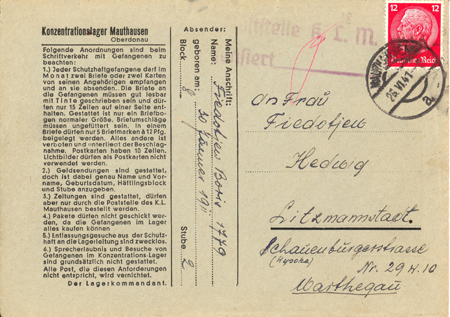 Konzentrationslager Mauthausen
Oberdonau
Folgende Anordnungen sind beim
Schriftverkehr mit Gefangenen zu
beachten:
1.) Jeder Schutzhaftgefangene darf im
Monat zwei Briefe oder zwei Karten
von seinen Angehörigen empfangen
und an sie absenden. Die Briefe an
die Gefangenen müssen gut lesbar
mit Tinte geschrieben sein und dür-
fen nur 15 Zeilen auf einer Seite ent-
halten. Gestattet ist nur ein Briefbo-
gen normaler Größe. Briefumschläge
müssen ungefüttert sein. In einem
Briefe dürfen nur 5 Briefmarken à 12 Pfg.
beigelegt werden. Alles andere ist
verboten und unterliegt der Beschlag-
nahme. Postkarten haben 10 Zeilen.
Lichtbilder dürfen als Postkarten nicht
verwendet werden.
2.) Geldsendungen sind gestattet,
doch ist dabei genau Name und Vor-
name, Geburtsdatum, Häftlingsblock
und Stube anzugeben.
3.) Zeitungen sind gestattet, dürfen
aber nur durch die Poststelle des K.L.
Mauthausen bestellt werden.
4.) Pakete dürfen nicht geschickt wer-
den, da die Gefangenen im Lager
alles kaufen können
5.) Entlassungsgesuche aus der Schutz-
haft an die Lagerleitung sind zwecklos.
6.) Sprecherlaubnis und Besuche von
Gefangenen im Konzentrations-Lager
sind grundsätzlich nicht gestattet.
Alle Post, die diesen Anforderungen
nicht entspricht, wird vernichtet.
Der Lagerkommandant.
Absender:
Meine Anschrift:
Fiedotjew Boris 1779
geboren am: 20 Jänner 1911
Block 8 Stube 2
Poststelle K.L.M.
12 12
Deutsches Reich
MAUTHAUSEN
26.VI.41
a
An Frau
Fiedotjew
Hedwig
Litzmannstadt.
Schauenburgerstrasse
(Wysoka) Nr. 29 W. 10
Warthegau